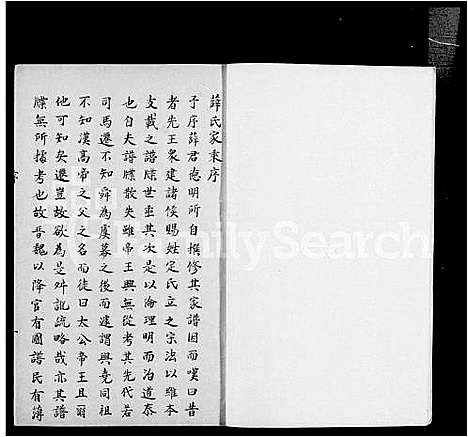 薛氏家乘序
予序薛君德明所自撰修其家譜因而嘆曰昔
者先王眾建諸侯賜姓定氏立之宗法以維本
支載之譜牒世率其次是以倫理明而治道泰
也自夫譜牒散失雖帝王興無從考其先代若
司馬遷不知舜為虞幕之後而遽謂與堯同祖
不知漢高帝之父之名而徒曰太公帝王且爾
他可知矣遷豈故欲為是舛訛疏略哉亦其譜
牒無所據考也故晉魏以降官有國譜民有簿
FamilySearch